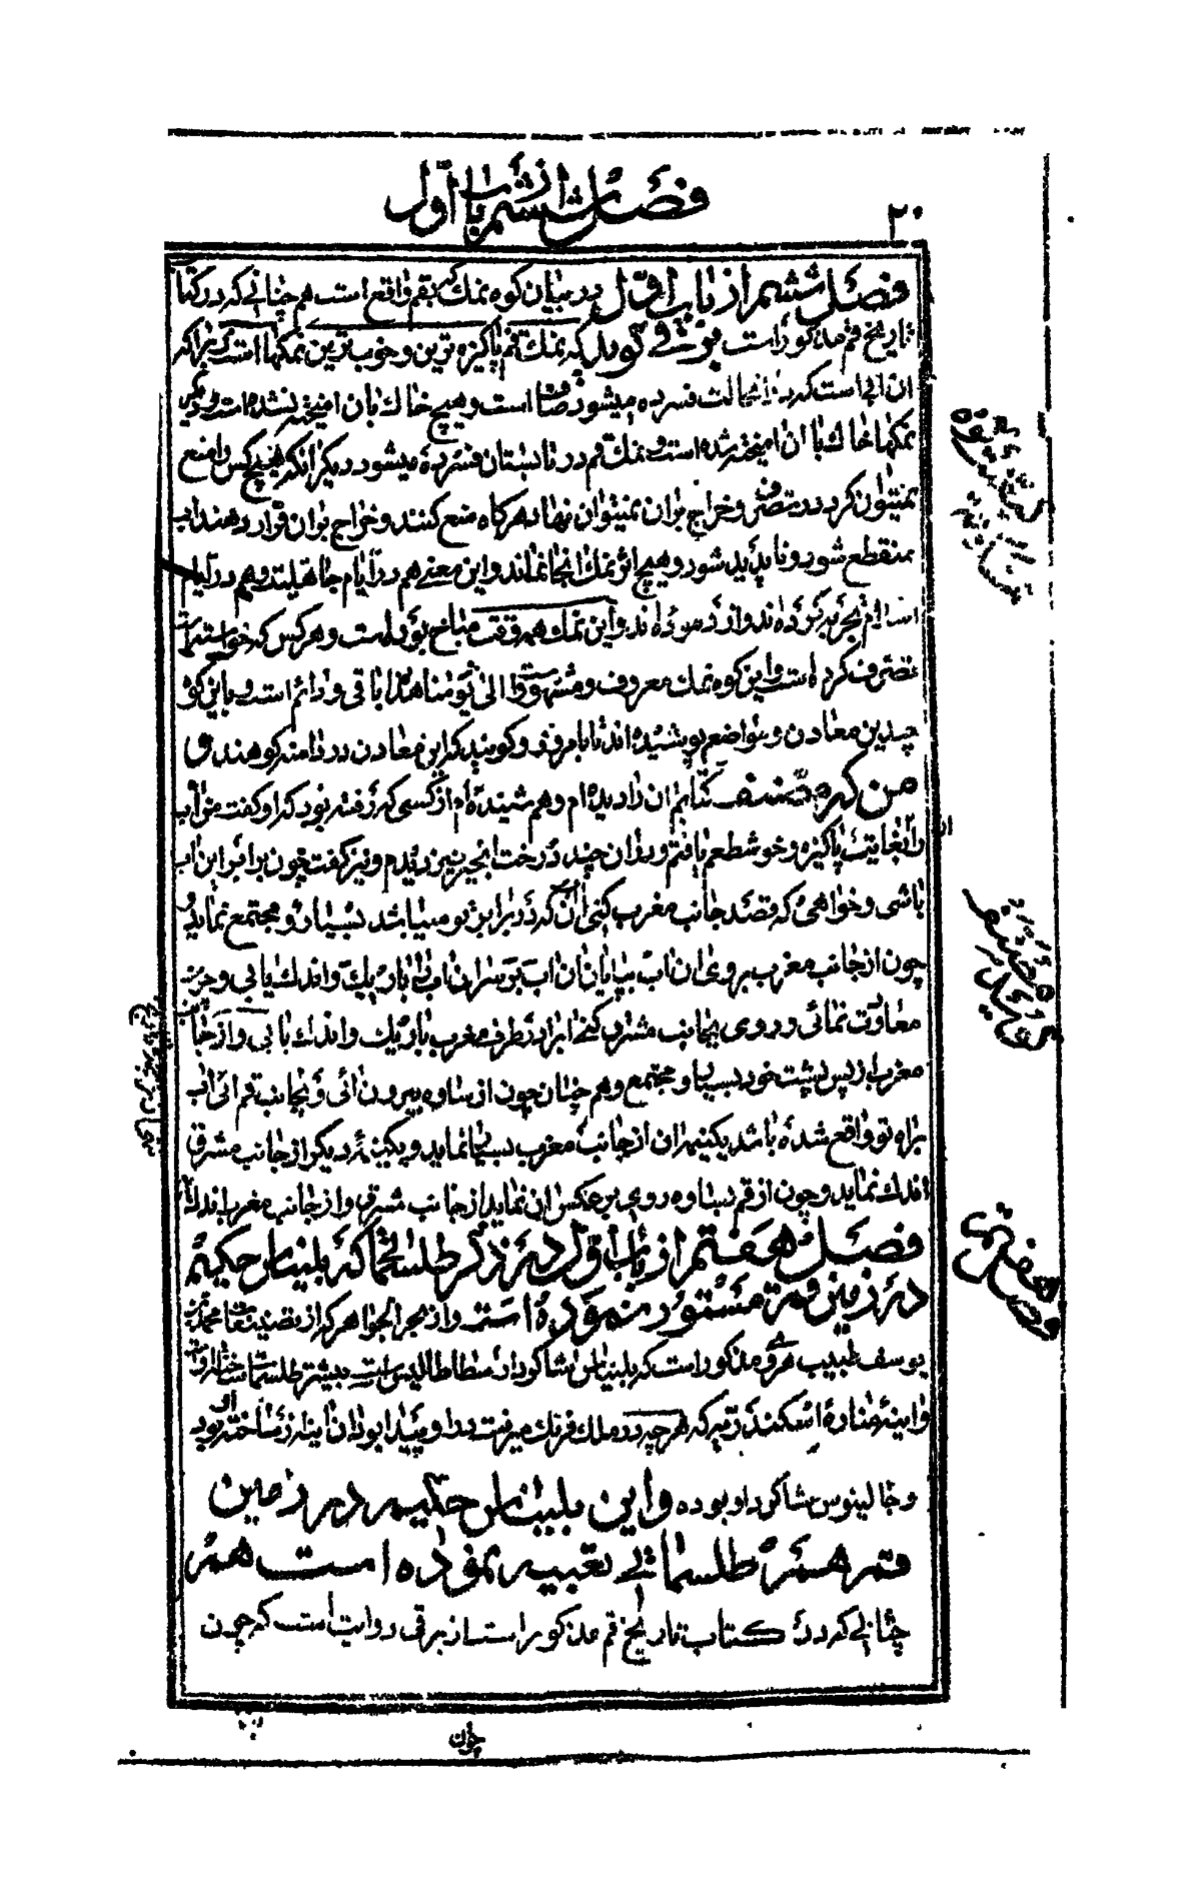 ۲۰
فصل ششم از باب اول
فصل ششم از باب اول در بیان کوه نمك که بقم واقع است هم چنانی که در کتاب
تاریخ قم مذکور است برقی گوید که نمك قم پاکیزه ترین و خوب ترین نمکها است زیرا که
ان ابی است که بدانحالت فسرده میشود و صاف است و هیچ خاك بان امیخته نشده است و دیگر
نمکها خاك با ان امیخته شده است و نمك قم در تابستان فسرده میشود دیگر انکه هیچ کس را منع
نمیتوان کرد در تصرف و خراج بران نمیتوان نهاد هرکاه منع کنند و خراج بران قرار دهند اب
منقطع شود و ناپدید شود و هیچ اثر نمك انجا نماند و این معنی هم در ایام جاهلیت و هم در ایام
اسلام تجربه کرده اند و ازموده اند و این نمك همه وقت مباح بوده است و هر کس که خواسته است
تصرف کرده است و این کوه نمك معروف و مشهور است الی یومنا هذا باقی و دائم است و باین کوه
چندین معادن و مواضع پوشیده اند تا بامروز و کویند که این معادن در دامنه کوهند و
من که مصنف کتابم ان را دیده ام و هم شنیده ام از کسی که رفته بود که او کفت من اب
را بغایت پاکیزه و خوشطعم یافتم و بران چند درخت انجیر نیز دیدم و نیز کفت چون برابر این اب
باشی و خواهی که قصد جانب مغرب کنی ان که در برابر تو میباشد بسیار و مجتمع نماید و
چون از جانب مغرب بروی ان اب بپایان ان اب بر سر ان اب باریك و اندك یابی و چون
معاودت نمائی و روی بجانب مشرق کنی اب را در طرف مغرب باریك و اندك یابی و از جانب
مغرب از پس پشت خود بسیار و مجتمع و هم چنان چون از ساوه بیرون ائی و بجانب قم ائی اب
براه تو واقع شده باشد یکنیمه ان از جانب مغرب بسیار نماید و یکنیمه دیکر از جانب مشرق
اندك نماید و چون از قم بساوه روی بر عکس ان نماید از جانب مشرق و از جانب مغرب اندك
فصل هفتم از باب اول در ذکر طلسمها که بلیناس حکیم
در زمین قم مستور نموده است و از بحر الجواهر که از تصنیفات محمد بن
یوسف طبیب هروی مذکور است که بلیناس شاکرد ارسطاطالیس است بیشتر طلسمات ساخته اوست
و اینه مناره اسکندریه که هرچه در ملك فرنك میرفت در او پیدا بود ان اینه نیز ساخته او بود
و جالینوس شاکرد او بوده و این بلیناس حکیم در زمین
قم هم طلسماتی تعبیه نموده است هم
چنانی که در کتاب تاریخ قم مذکور است از برقی روایت است که چون
چون